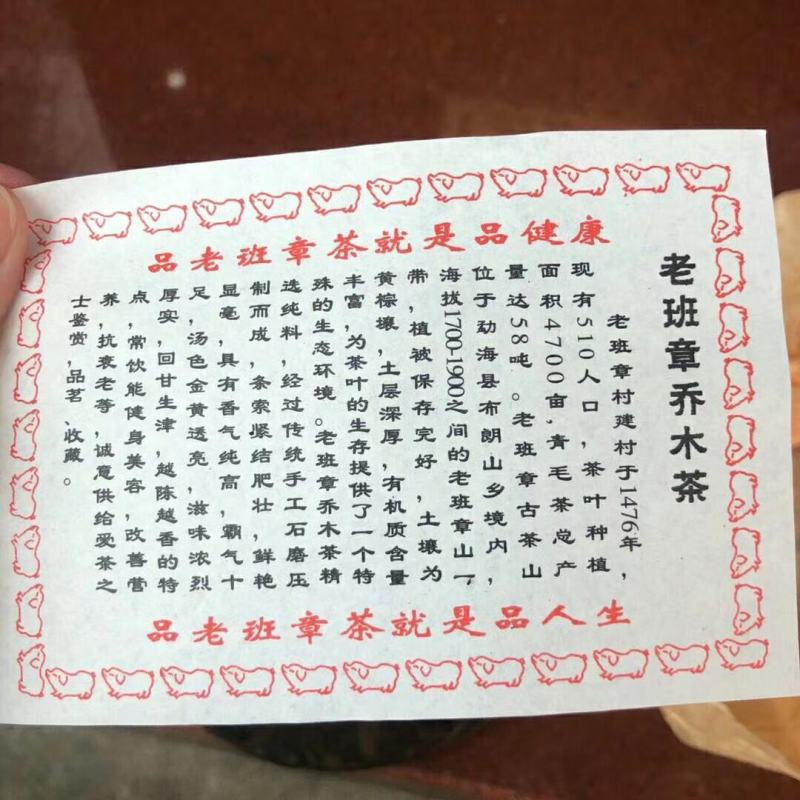 品老班章茶就是品健康
老班章乔木茶
老班章村建村于1476年，
现有510人口，茶叶种植
面积4700亩，青毛茶总产
量达58吨。老班章古茶山
位于勐海县布朗山乡境内，
海拔1700-1900之间的老班章山一
带，植被保存完好，土壤为
黄棕壤，土层深厚，有机质含量
丰富，为茶叶的生存提供了一个特
殊的生态环境。老班章乔木茶精
选纯料，经过传统手工石磨压
制而成，条索紧结肥壮，鲜艳
显毫，具有香气纯高，霸气十
足，汤色金黄透亮，滋味浓烈
厚实，回甘生津，越陈越香的特
点，常饮能健身美容，改善营
养，抗衰老等，诚意供给爱茶之
士鉴赏，品茗、收藏。
品老班章茶就是品人生